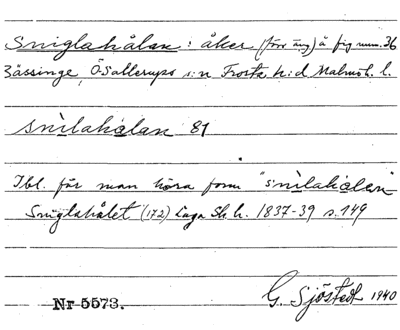 Sniglahålan : åker (förr äng) å fig num. 36
Bässinge, Ö Sallerups s:n Frosta h:d Malmöh. l.
snìlahɑlan 81
Ibl. får man höra form "snìlahɑlen"
Sniglahålet (172) Laga Sk. h. 1837-39 s. 149
G. Sjöstedt 1940
Nr 5573.